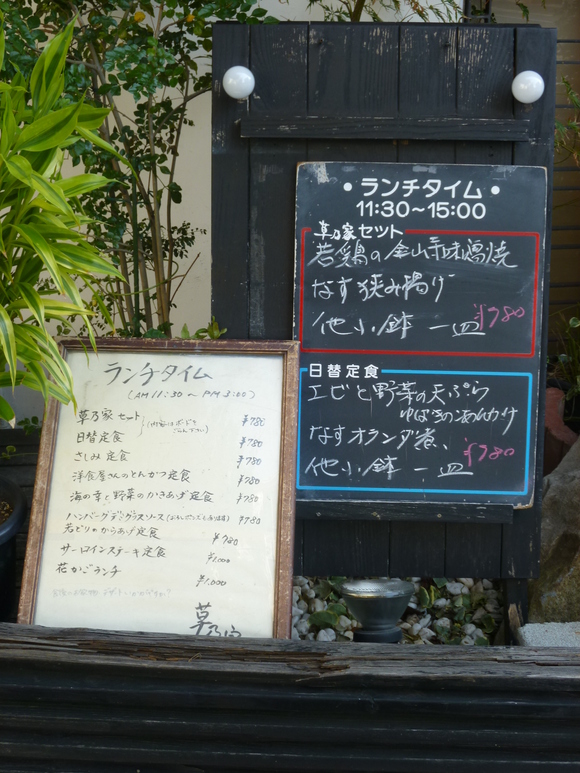 • ランチタイム •
11:30～15:00
草乃家セット
若鶏の金山寺味噌焼
なす狭み揚げ
他小鉢 一皿 ¥780
日替定食
エビと野菜の天ぷら
なすオランダ煮、
他小鉢 一皿 ¥780
ランチタイム
(AM 11:30 ～ PM 3:00)
草乃家セット ¥780
日替定食 ¥780
さしみ定食 ¥780
洋食屋さんのとんかつ定食 ¥780
海の幸と野菜のかきあげ定食 ¥780
ハンバーグデミグラスソース ¥780
若どりのからあげ定食 ¥780
サーロインステーキ定食 ¥1,000
花かごランチ ¥1,000
草乃家